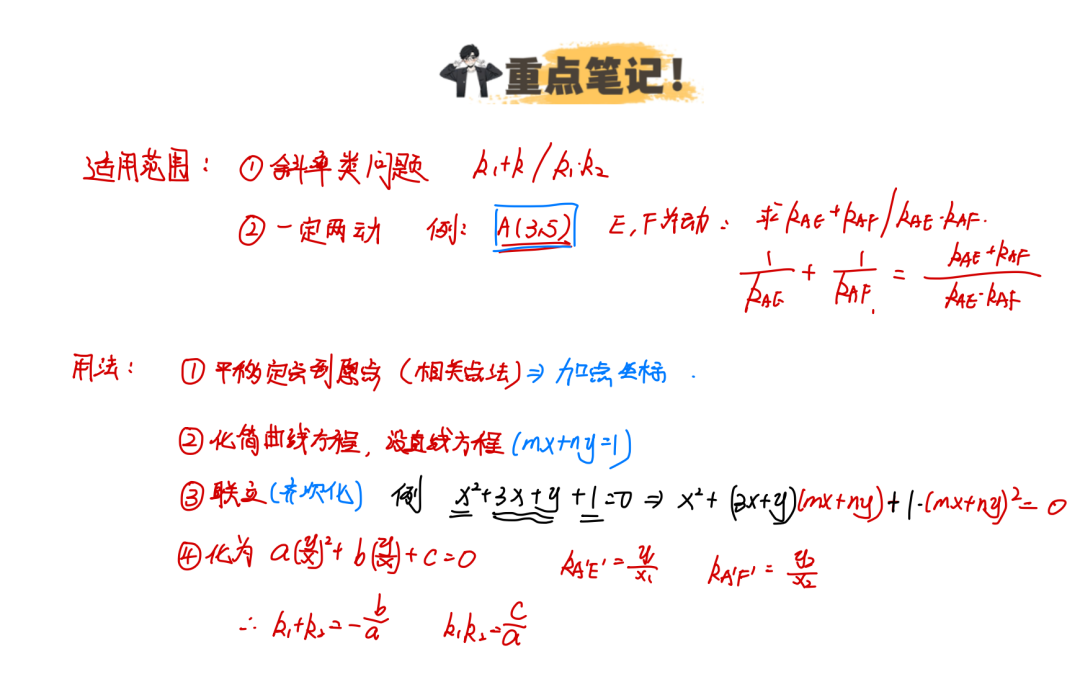 重点笔记!
适用范围: ① 斜率类问题 k₁+k / k₁·k₂
② 一定两动 例: A(3,5) E,F为动: 求 k_AE+k_AF / k_AE·k_AF.
1/k_AE + 1/k_AF = (k_AE+k_AF)/(k_AE·k_AF)
用法: ① 平移定点到原点 (相关点法) ⇒ 加点坐标.
② 化简曲线方程, 设直线方程 (mx+ny=1)
③ 联立 (齐次化) 例 x²+3x+y+1=0 ⇒ x²+(3x+y)(mx+ny)+1·(mx+ny)²=0
④ 化为 a(y/x)²+b(y/x)+c=0 k_A'E'=y₁/x₁ k_A'F'=y₂/x₂
∴ k₁+k₂=-b/a k₁k₂=c/a